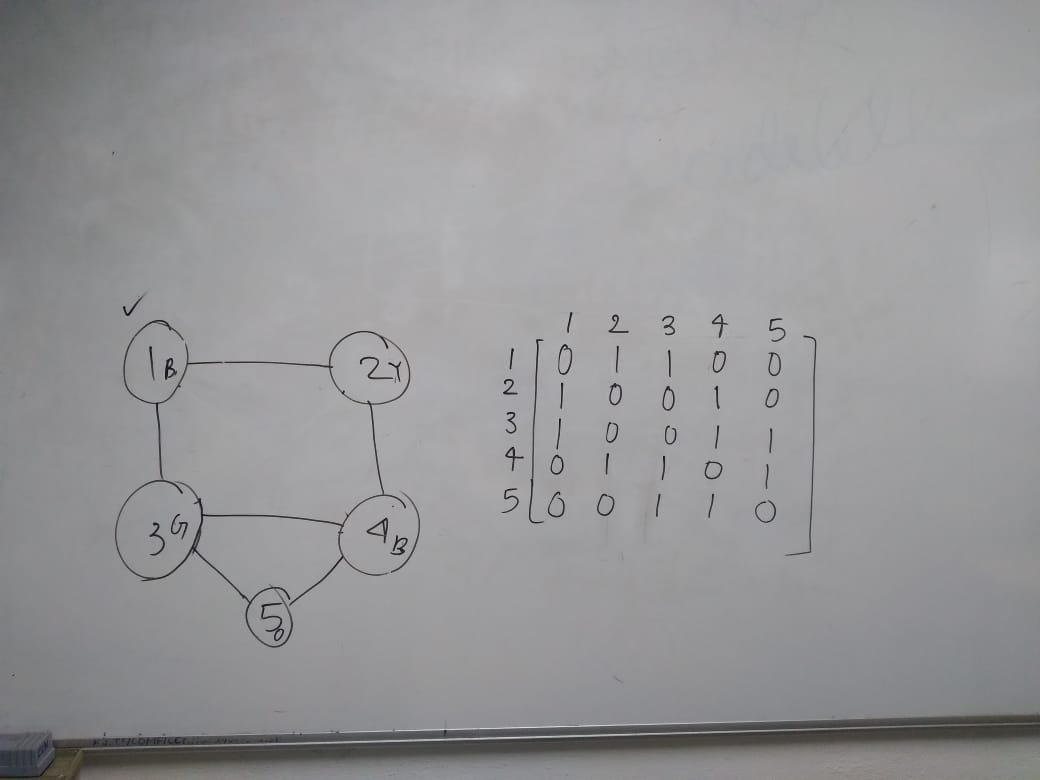 ✓
1B 2Y
3G 4B
5o
1 2 3 4 5
1 0 1 1 0 0
2 1 0 0 1 0
3 1 0 0 1 1
4 0 1 1 0 1
5 0 0 1 1 0